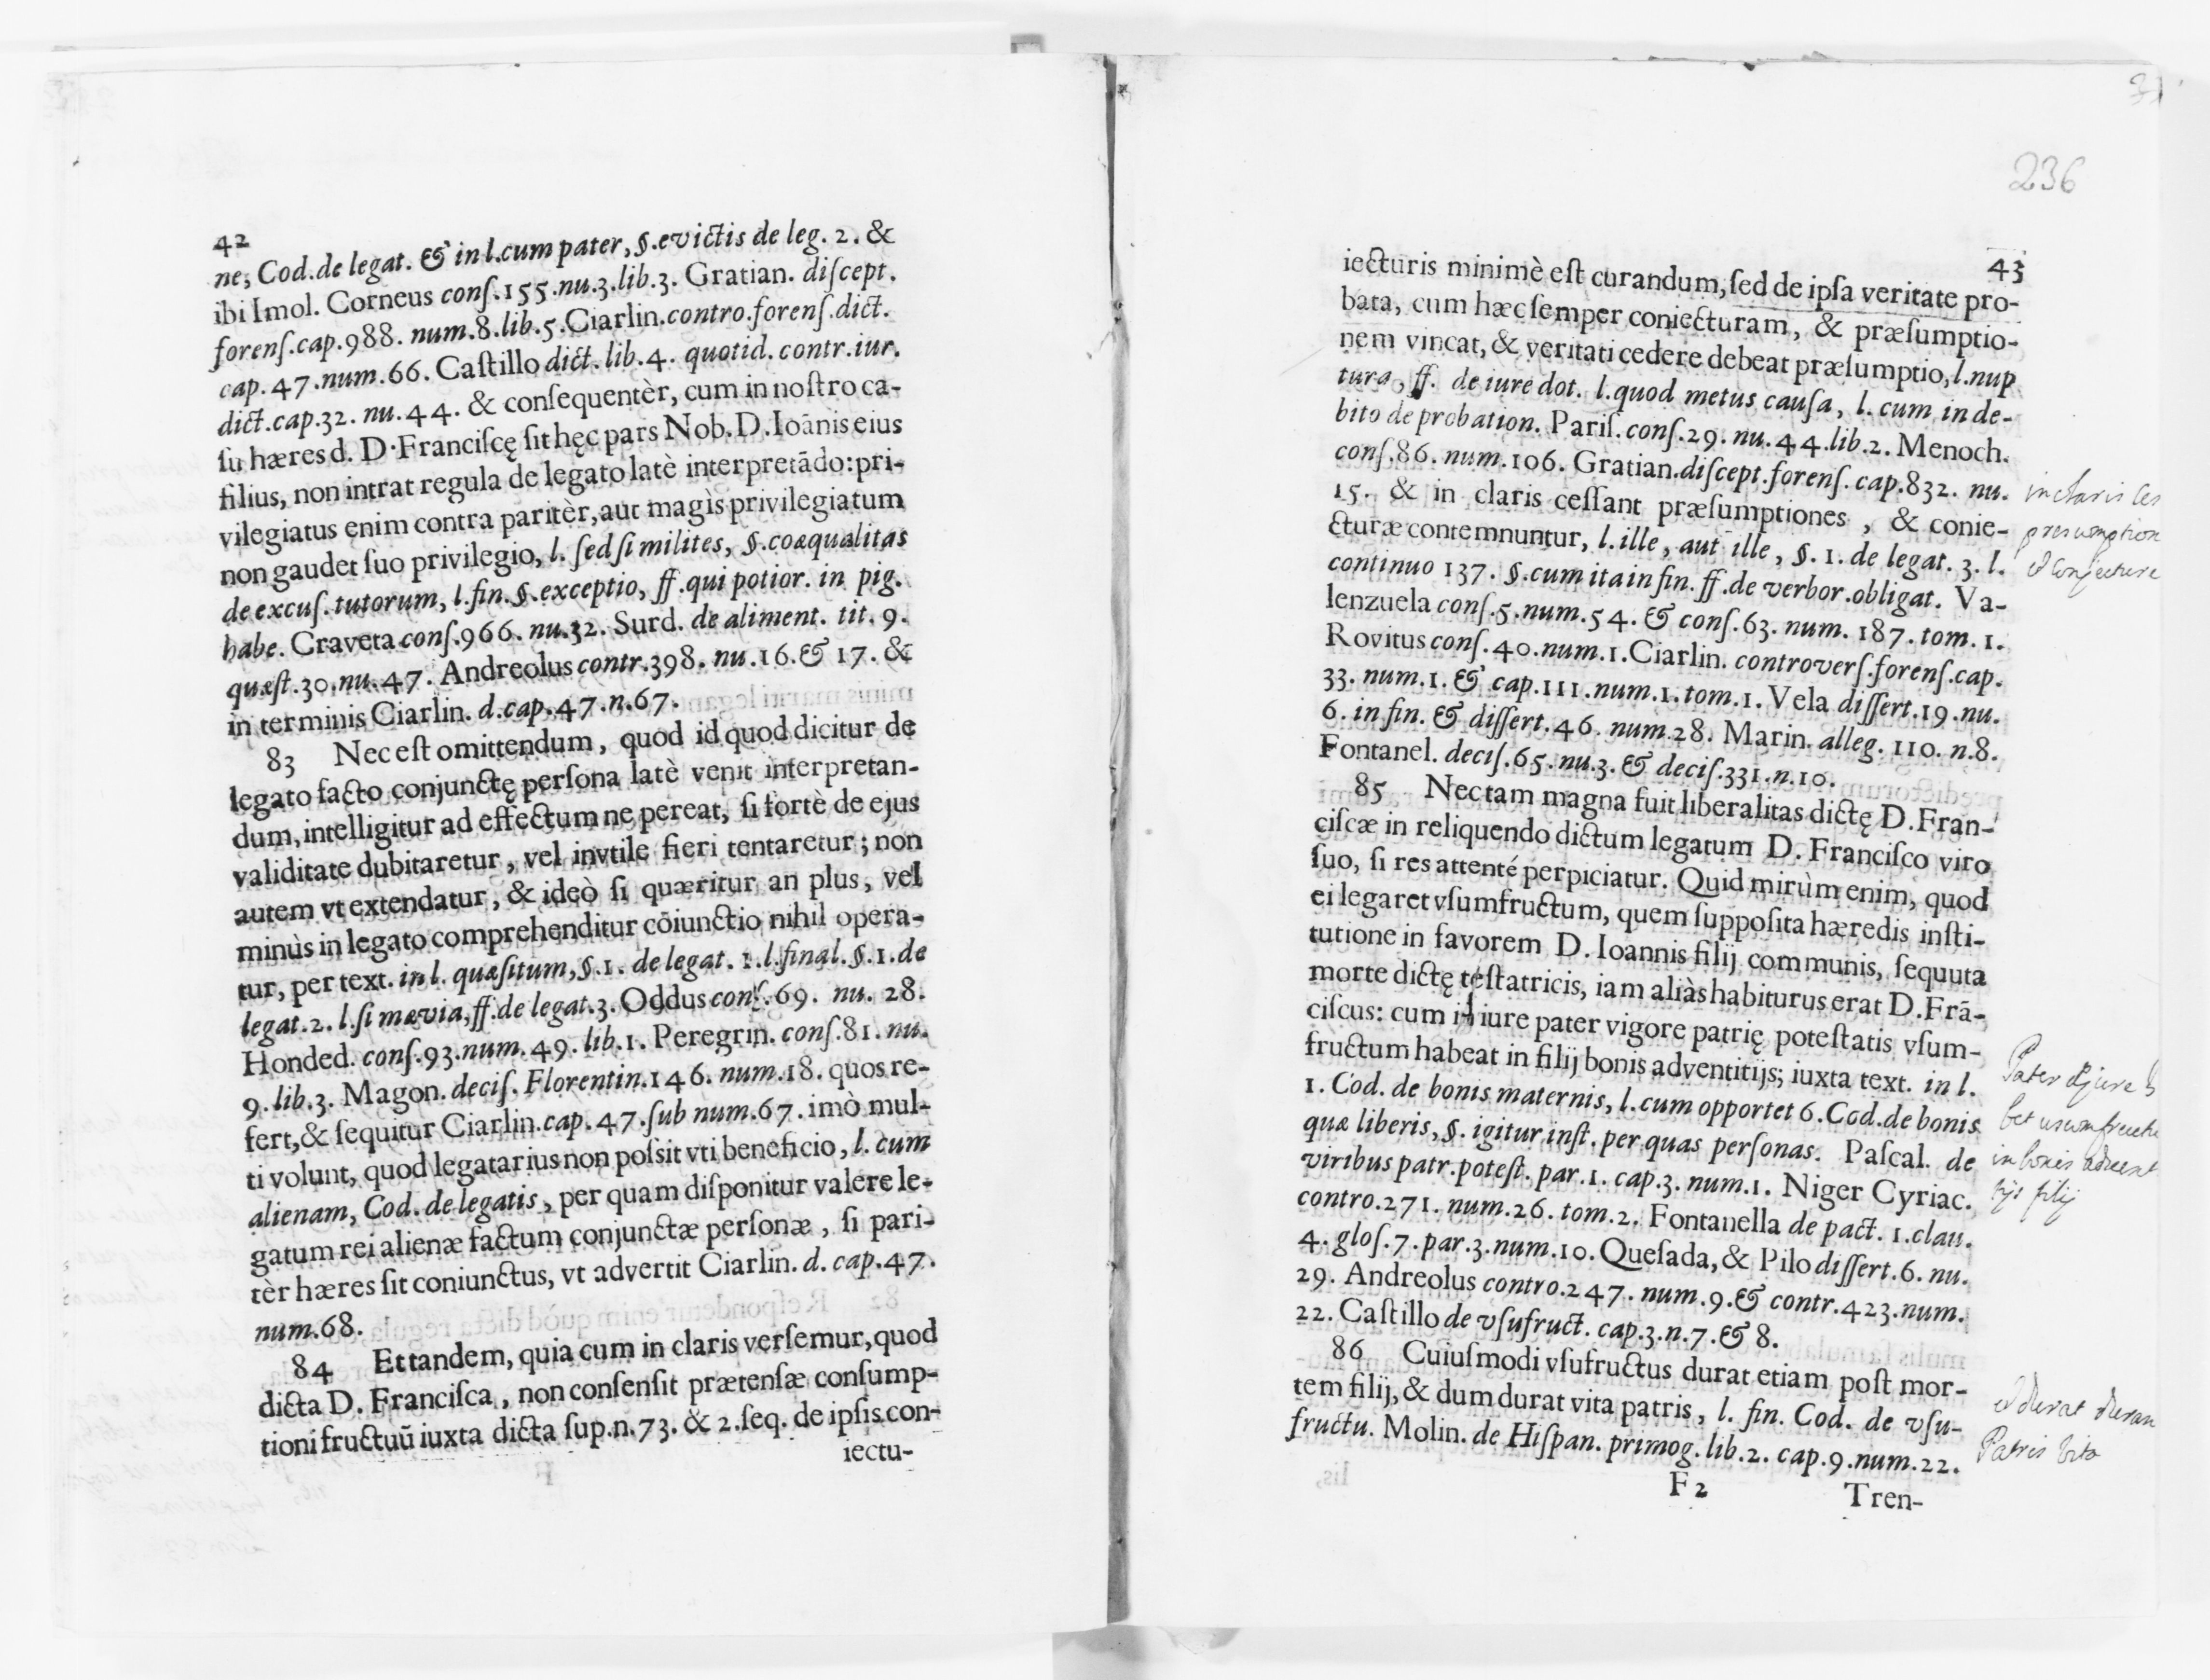 42
ne, Cod.de legat. & in l.cum pater, §.evictis de leg. 2. &
ibi Imol. Corneus conſ.155.nu.3.lib.3. Gratian. diſcept.
forenſ.cap.988. num.8.lib.5.Ciarlin.contro.forenſ.dict.
cap.47.num.66. Caſtillo dict.lib.4. quotid. contr.iur.
dict.cap.32. nu.44. & conſequentèr, cum in noſtro ca-
ſu hæres d. D.Franciſcę ſit hęc pars Nob.D.Ioānis eius
filius, non intrat regula de legato latè interpretādo: pri-
vilegiatus enim contra paritèr, aut magìs privilegiatum
non gaudet ſuo privilegio, l. ſed ſi milites, §.coæqualitas
de excuſ.tutorum, l.fin.§.exceptio, ff.qui potior. in pig.
habe. Craveta conſ.966. nu.32. Surd. de aliment. tit. 9.
quæſt.30.nu.47. Andreolus contr.398. nu.16.& 17. &
in terminis Ciarlin. d.cap.47.n.67.
83 Nec eſt omittendum, quod id quod dicitur de
legato facto conjunctę perſona latè venit interpretan-
dum, intelligitur ad effectum ne pereat, ſi fortè de ejus
validitate dubitaretur, vel invtile fieri tentaretur; non
autem vt extendatur, & ideò ſi quæritur an plus, vel
minùs in legato comprehenditur cōiunctio nihil opera-
tur, per text. in l. quæſitum, §.1. de legat. 1.l.final.§.1.de
legat.2. l.ſi mævia, ff.de legat.3. Oddus conſ.69. nu. 28.
Honded. conſ.93.num.49. lib.1. Peregrin. conſ.81. nu.
9.lib.3. Magon. deciſ. Florentin.146. num.18. quos re-
fert, & ſequitur Ciarlin.cap.47.ſub num.67. imò mul-
ti volunt, quod legatarius non poſsit vti beneficio, l. cum
alienam, Cod. de legatis, per quam diſponitur valere le-
gatum rei alienæ factum conjunctæ perſonæ, ſi pari-
tèr hæres ſit coniunctus, vt advertit Ciarlin. d. cap.47.
num.68.
84 Et tandem, quia cum in claris verſemur, quod
dicta D. Franciſca, non conſenſit prætenſæ conſump-
tioni fructuū iuxta dicta ſup.n.73. & 2.ſeq. de ipſis con-
iectu-
236
43
iecturis minimè eſt curandum, ſed de ipſa veritate pro-
bata, cum hæc ſemper coniecturam, & præſumptio-
nem vincat, & veritati cedere debeat præſumptio, l.nup
tura, ff. de iure dot. l.quod metus cauſa, l. cum in de-
bito de probation. Pariſ. conſ.29. nu.44.lib.2. Menoch.
conſ.86. num.106. Gratian.diſcept.forenſ. cap.832. nu.
15. & in claris ceſſant præſumptiones, & conie-
cturæ contemnuntur, l.ille, aut ille, §. 1. de legat. 3. l.
continuo 137. §.cum ita in fin. ff.de verbor.obligat. Va-
lenzuela conſ.5.num.54. & conſ.63. num. 187. tom. 1.
Rovitus conſ.40.num.1.Ciarlin. controverſ.forenſ.cap.
33. num.1. & cap.111.num.1.tom.1. Vela diſſert.19.nu.
6. in fin. & diſſert.46. num.28. Marin. alleg. 110. n.8.
Fontanel. deciſ.65.nu.3. & deciſ.331.n.10.
in claris ces
presumption
& Conjecture
85 Nec tam magna fuit liberalitas dictę D.Fran-
ciſcæ in reliquendo dictum legatum D. Franciſco viro
ſuo, ſi res attenté perpiciatur. Quid mirùm enim, quod
ei legaret vſumfructum, quem ſuppoſita hæredis inſti-
tutione in favorem D. Ioannis filij communis, ſequuta
morte dictę teſtatricis, iam aliàs habiturus erat D.Frā-
ciſcus: cum iſ iure pater vigore patrię poteſtatis vſum-
fructum habeat in filij bonis adventitijs; iuxta text. in l.
1. Cod. de bonis maternis, l.cum opportet 6.Cod.de bonis
quæ liberis, §. igitur inſt. per quas perſonas. Paſcal. de
viribus patr.poteſt. par.1. cap.3. num.1. Niger Cyriac.
contro.271. num.26. tom.2. Fontanella de pact. 1.clau.
4. gloſ.7.par.3.num.10. Queſada, & Pilo diſſert.6. nu.
29. Andreolus contro.247. num.9.& contr.423.num.
22. Caſtillo de vſufruct. cap.3.n.7.& 8.
Pater
in bonis
filij
86 Cuiuſmodi vſufructus durat etiam poſt mor-
tem filij, & dum durat vita patris, l. fin. Cod. de vſu-
fructu. Molin. de Hiſpan. primog.lib.2. cap.9.num.22.
Patris vita
F 2 Tren-